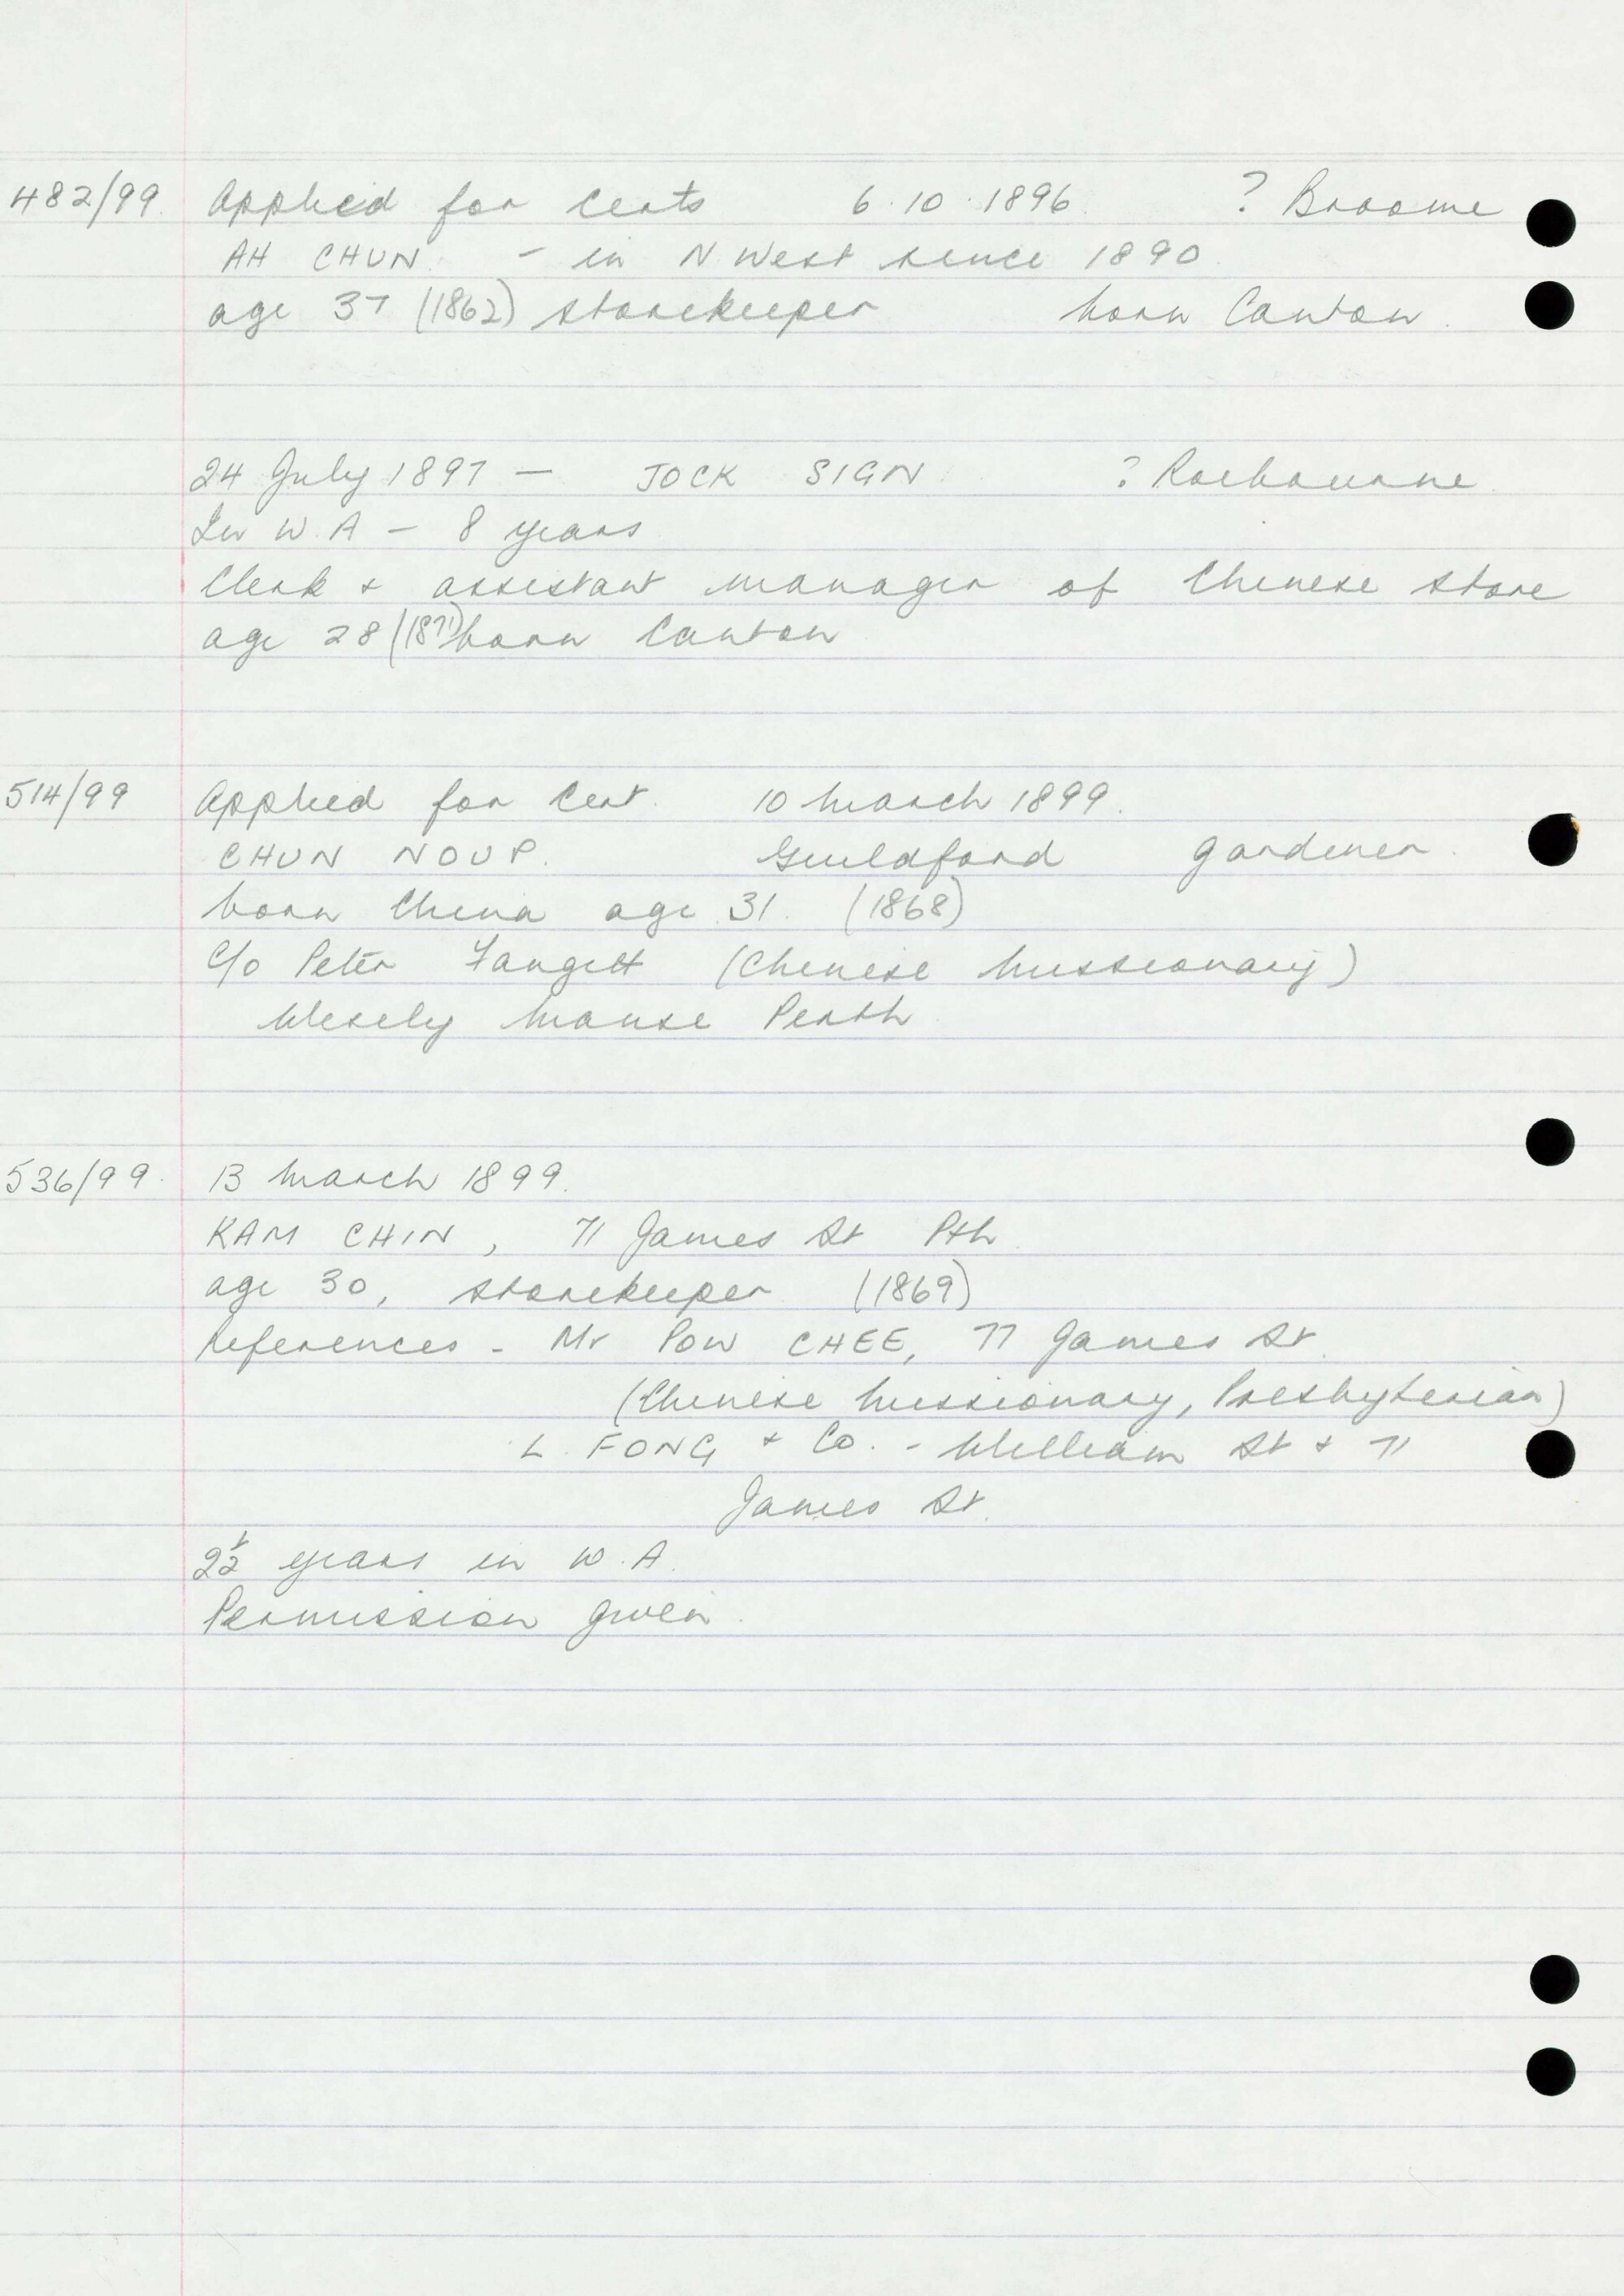 482/99 Applied for Certs 6.10.1896. ? Broome
AH CHUN - in N West since 1890
age 37 (1862) storekeeper born Canton.
24 July 1897 - JOCK SIGN ? Roebourne
In W.A - 8 years
Clerk + assistant manager of Chinese store
age 28 (1871) born Canton
514/99 Applied for Cert. 10 March 1899.
CHUN NOUP. Guildford gardener.
born China age 31. (1868)
C/o Peter (Chinese Missionary)
Wesely Manse Perth
536/99. 13 March 1899.
KAM CHIN, 71 James St Pth
age 30, storekeeper (1869)
References - Mr POW CHEE, 77 James St.
(Chinese Missionary, Presbyterian)
L. FONG + Co. - William St + 71
James St.
2½ years in W.A.
Permission given.